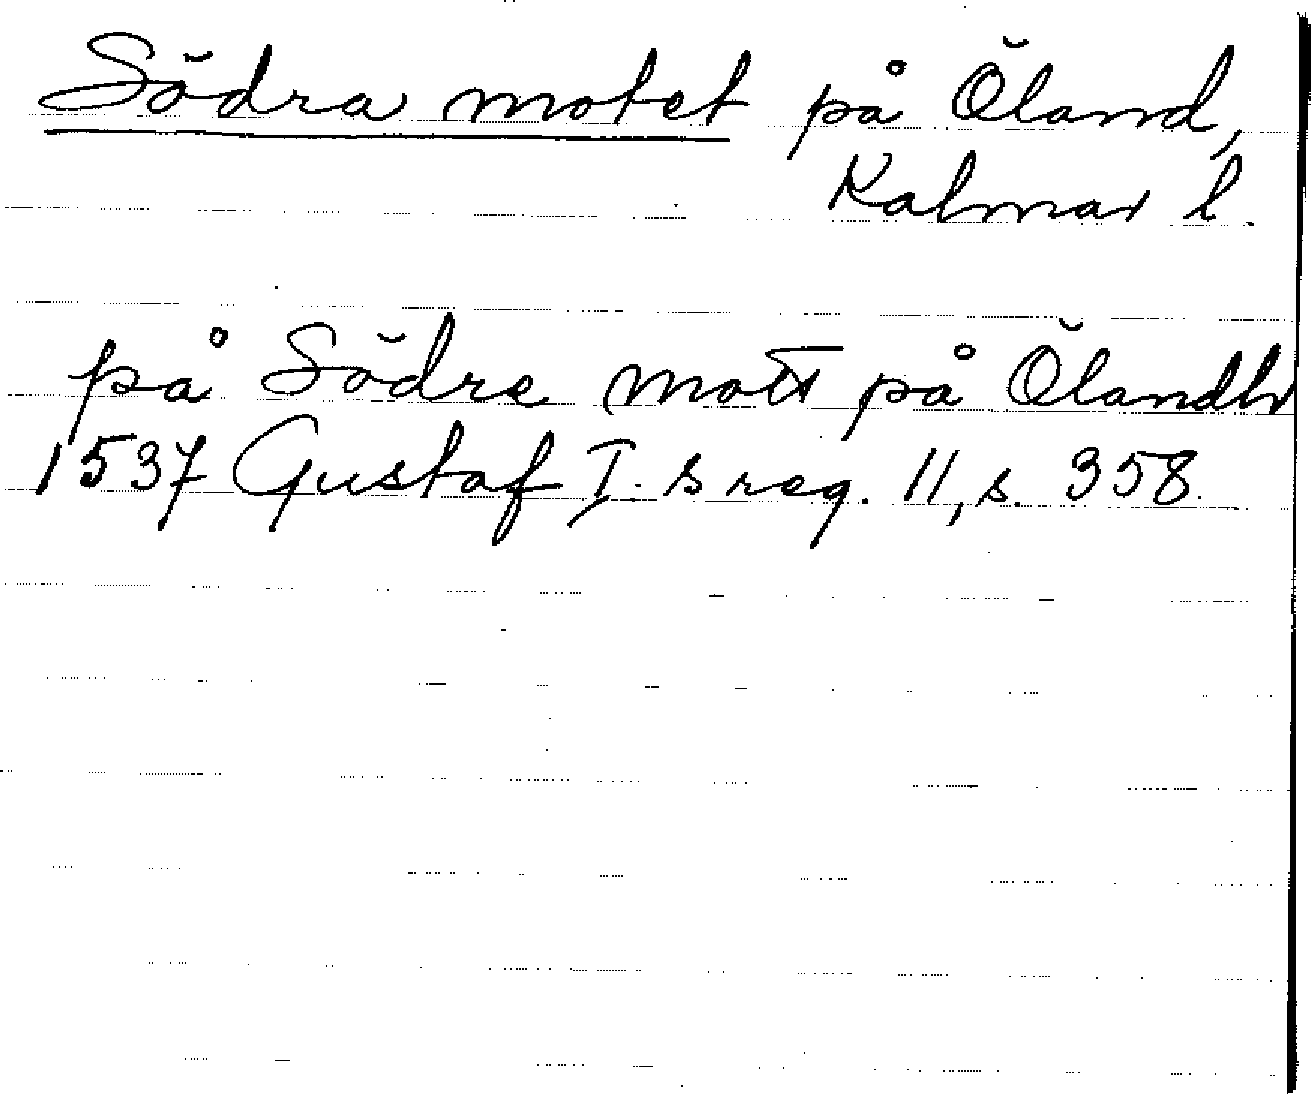 Södra motet på Öland,
Kalmar l.
på Södre mott på Ölandh
1537 Gustaf I. s reg. 11, s. 358.